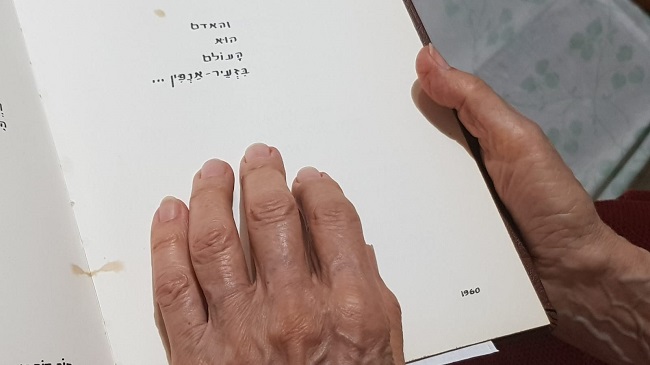 והאדם
הוא
הָעוֹלם
בִּזְעֵיר-אַנְפִּין ...
1960